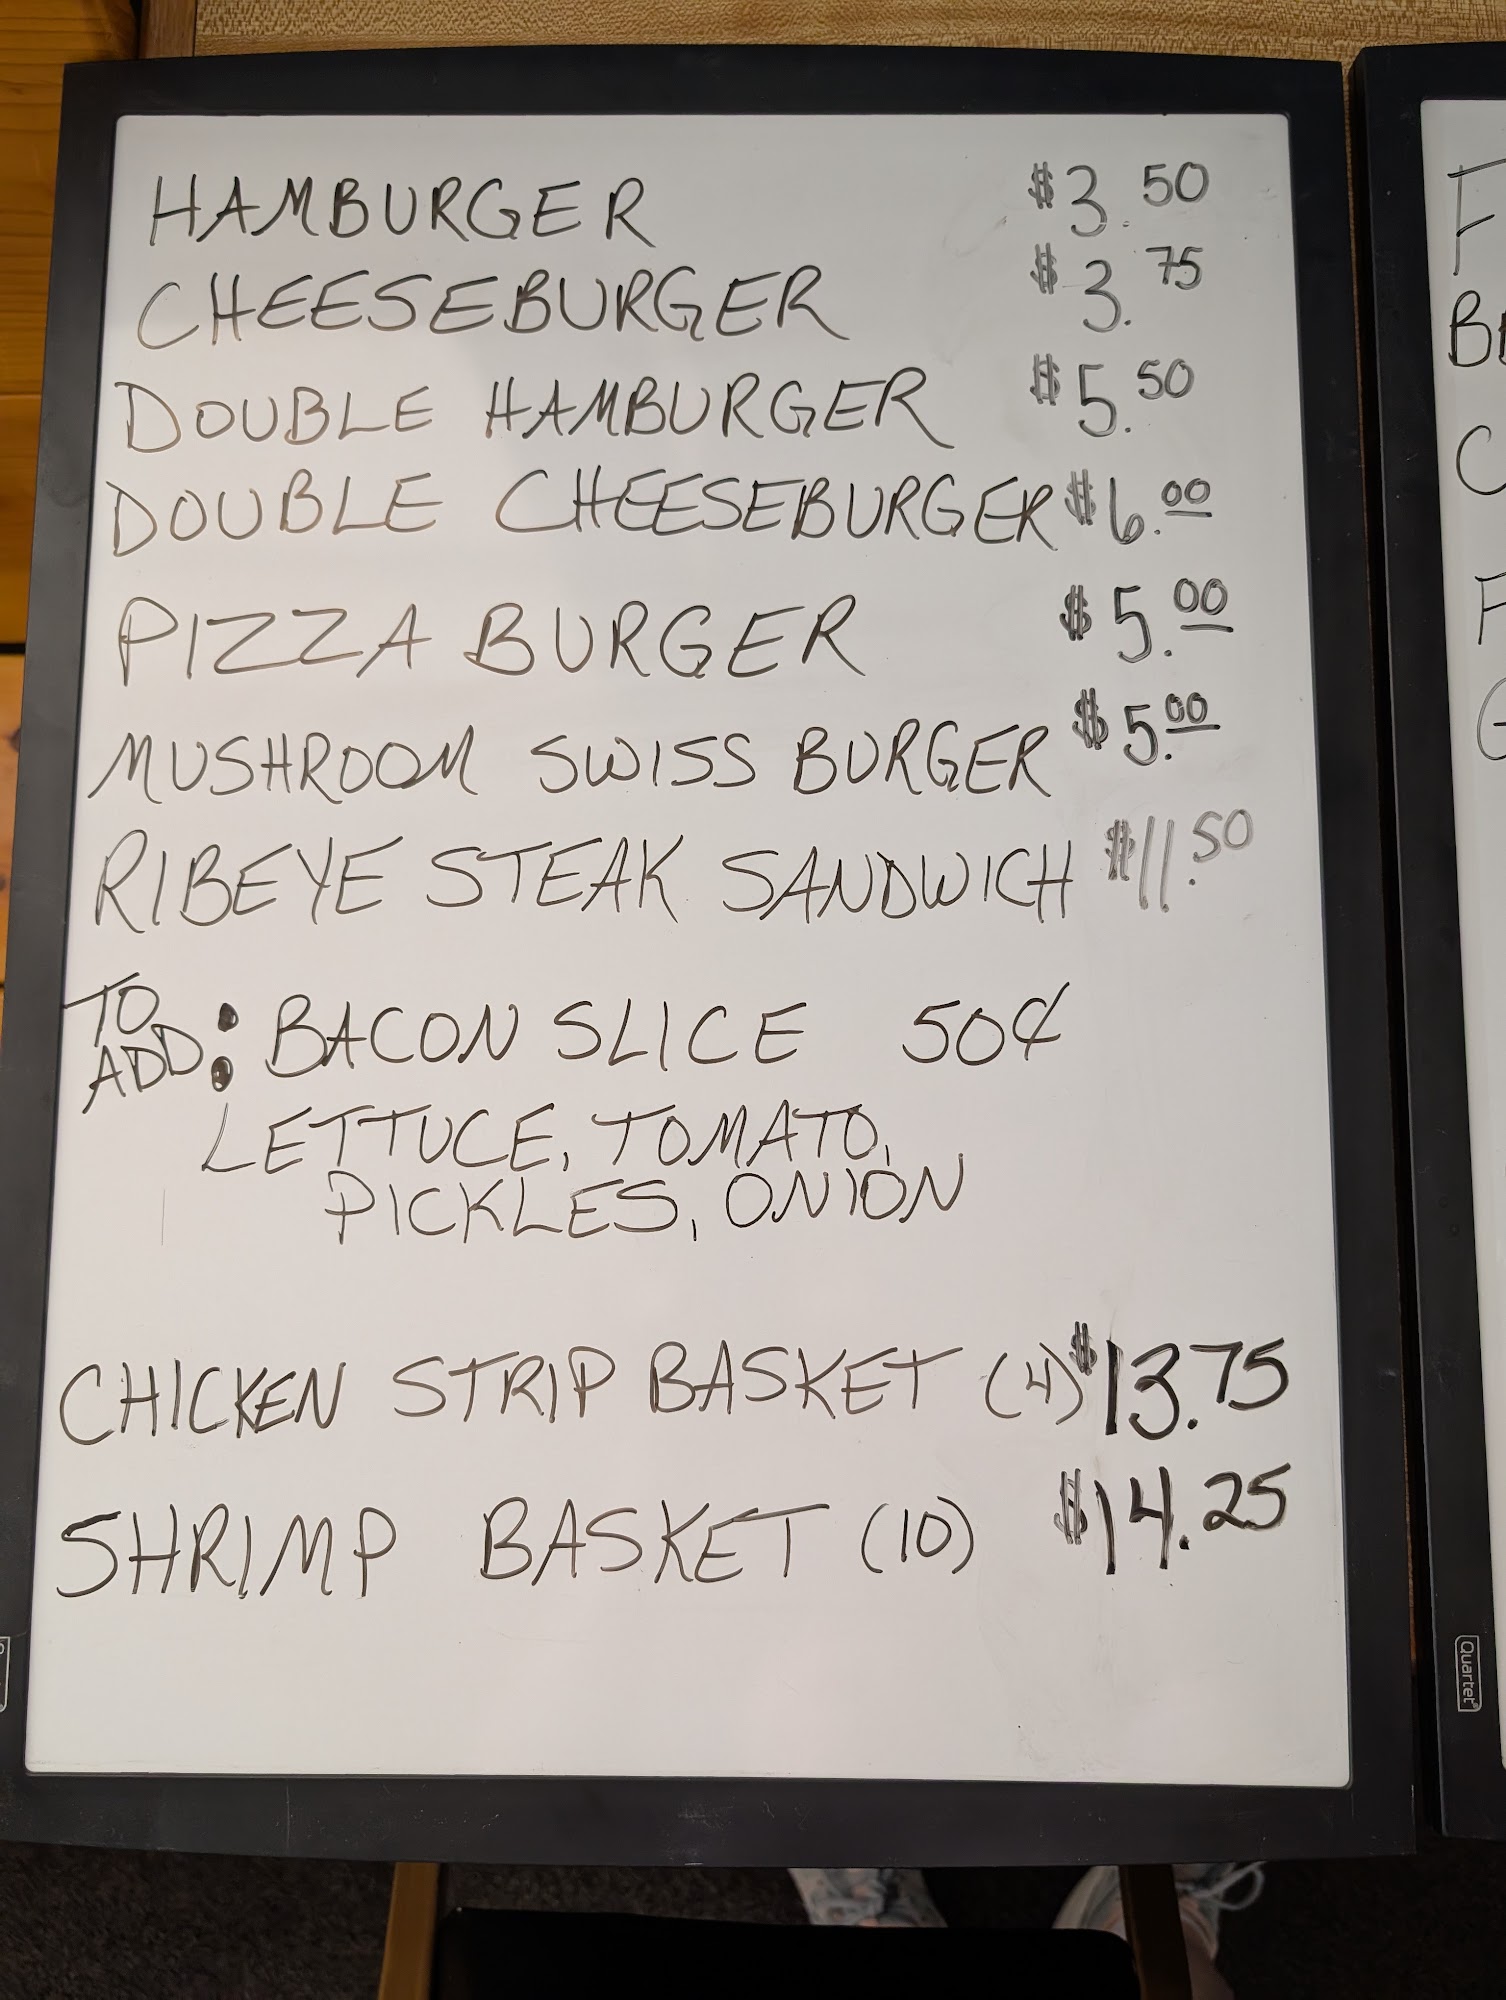 HAMBURGER $3.50
CHEESEBURGER $3.75
DOUBLE HAMBURGER $5.50
DOUBLE CHEESEBURGER $6.00
PIZZA BURGER $5.00
MUSHROOM SWISS BURGER $5.00
RIBEYE STEAK SANDWICH $11.50
TO ADD: BACON SLICE 50¢
LETTUCE, TOMATO,
PICKLES, ONION
CHICKEN STRIP BASKET (4) $13.75
SHRIMP BASKET (10) $14.25
Quartet